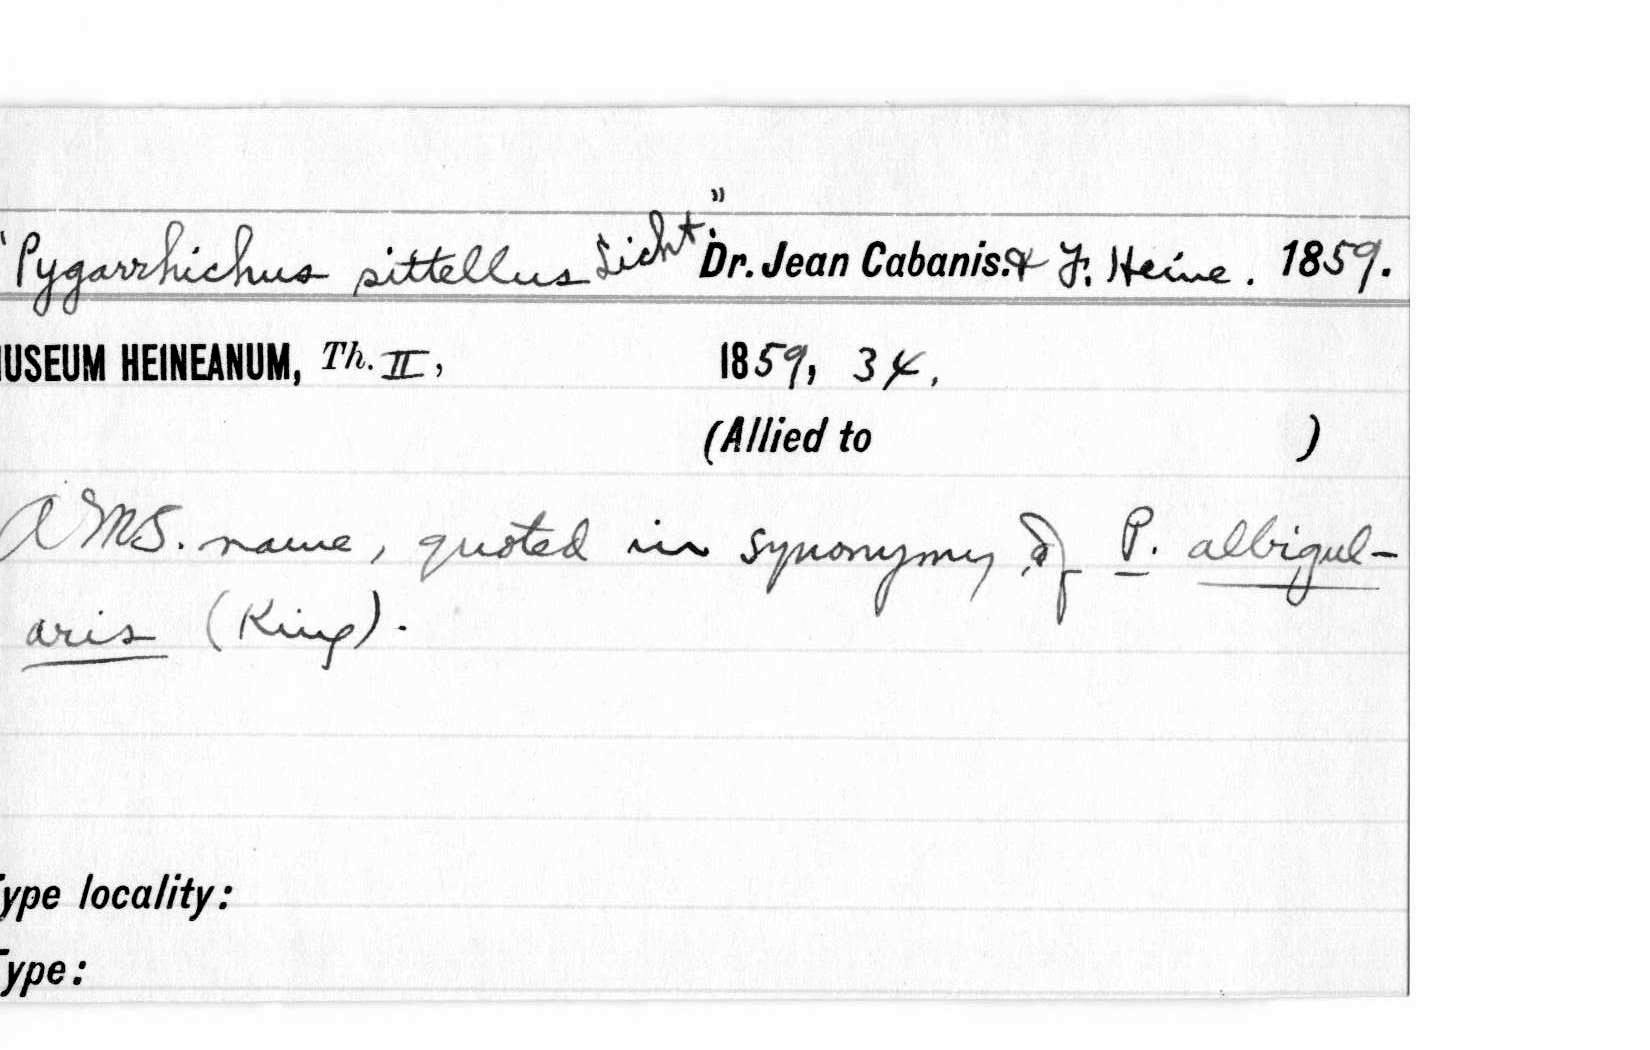 "Pygarrhichus sittellus Licht." Dr. Jean Cabanis. & F. Heine. 1859.
MUSEUM HEINEANUM, Th. II, 1859, 34.
(Allied to )
A MS. name, quoted in synonymy of P. albigul-
aris (King).
Type locality:
Type: